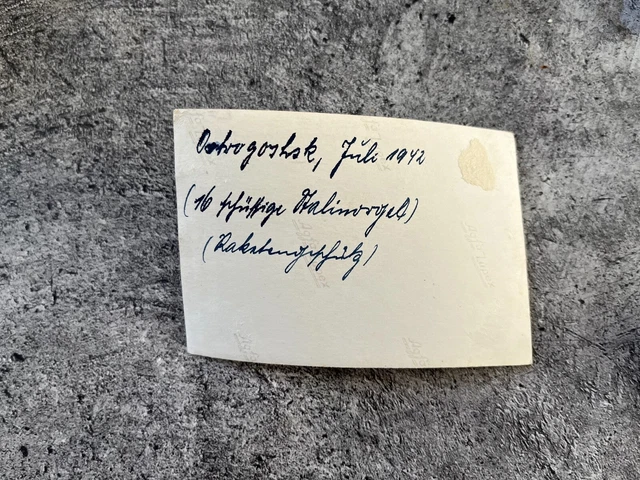 Ostrogoshsk, Juli 1942
(16 schüssige Stalinorgel)
(Raketengeschütz)